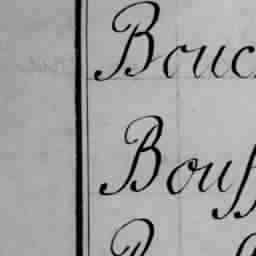 Bouc
Bouff